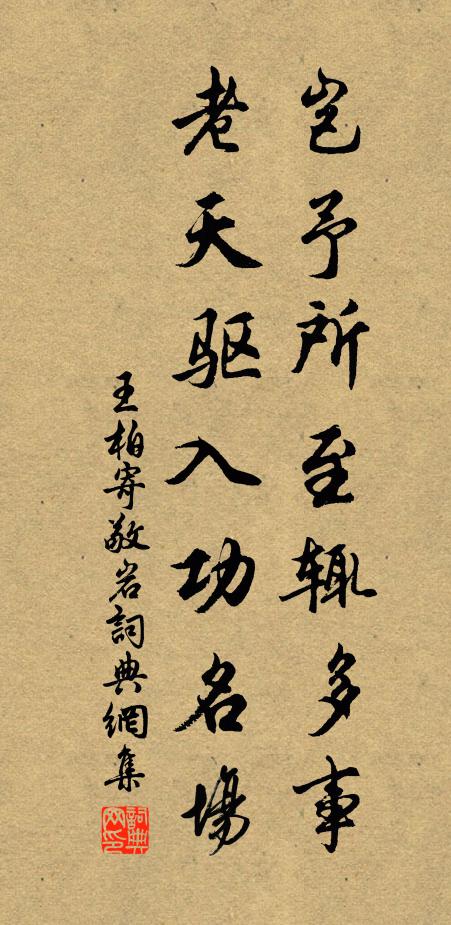 岂予所至辄多事
老天驱入功名場
王柏寄敬岩詞典網集
詞典网印